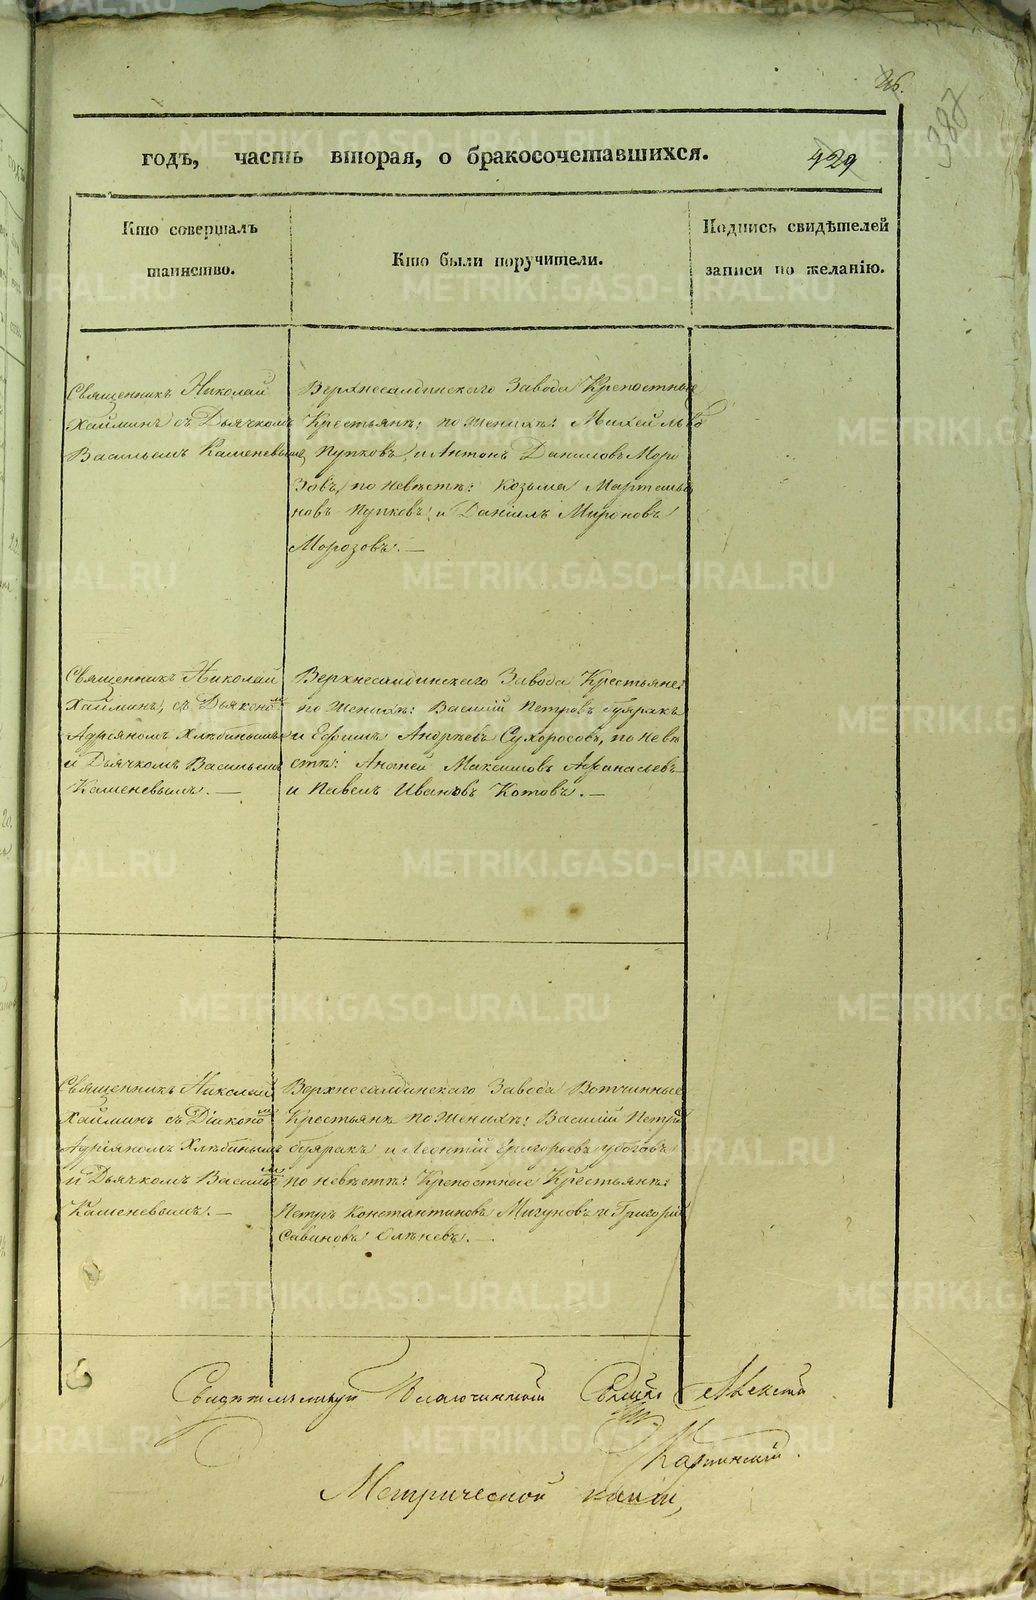 387
годъ, часть вторая, о бракосочетавшихся. 429
Кто совершалъ
таинство.
Кто были поручители.
Подпись свидѣтелей
записи по желанію.
Священникъ Николай
Хайминъ съ Дьячкомъ
Васильемъ Каменевымъ
Верхнесалдинскаго Завода Крепостные
Крестьяне; по женихѣ: Михей Львовъ
Пупковъ, и Антонъ Даниловъ Моро
зовъ, по невѣстѣ: Козьма Мартемья
новъ Пупковъ, и Даніилъ Мироновъ
Морозовъ. —
Священникъ Николай
Хайминъ, съ Дьякономъ
Адріяномъ Хлѣбинымъ
и Дьячкомъ Васильемъ
Каменевымъ. —
Верхнесалдинскаго Завода Крестьяне:
по женихѣ: Василій Петровъ
и Ефимъ Андреевъ Сухоросовъ, по невѣ
стѣ: Ананей Максимовъ Афанасьевъ
и Павелъ Ивановъ Котовъ. —
Священникъ Николай
Хайминъ съ Діакономъ
Адріяномъ Хлѣбинымъ
и Дьячкомъ Васильемъ
Каменевымъ. —
Верхнесалдинскаго Завода Вотчинные
Крестьяне по женихѣ: Василій Петровъ
и Леонтій Григорьевъ
по невѣстѣ: Крепостные Крестьяне:
Петръ Константиновъ Мигуновъ и Григорій
Савиновъ Оленевъ. —
Свидѣтельствуй Благочинный Алексій
Карпинскій.
Метрической книги,
METRIKI.GASO-URAL.RU